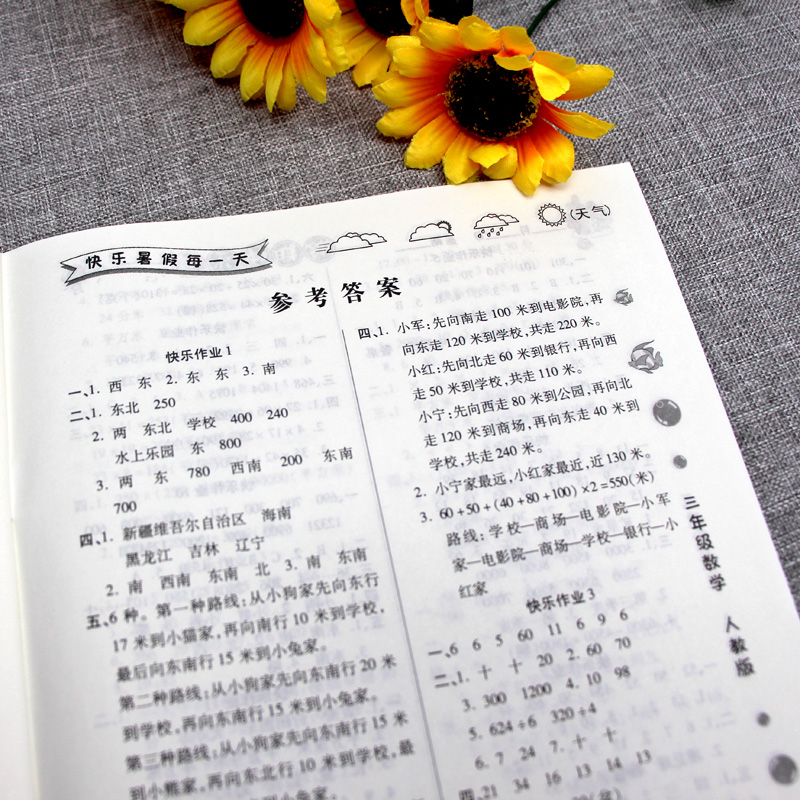 快乐暑假每一天
(天气)
参考答案
快乐作业1
一、1. 西 东 2. 东 东 3. 南
二、1. 东北 250
2. 两 东北 学校 400 240
水上乐园 东 800
3. 两 东 780 西南 200 东南
700
四、1. 新疆维吾尔自治区 海南
黑龙江 吉林 辽宁
2. 南 西南 东南 北 3. 南 东南
五、6 种。第一种路线:从小狗家先向东行
17 米到小猫家,再向南行 10 米到学校,
最后向东南行 15 米到小兔家。
第二种路线:从小狗家先向东南行 20 米
到学校,再向东南行 15 米到小兔家。
第三种路线:从小狗家先向东南行 15 米
到小熊家,再向东北行 10 米到学校,最
四、1. 小军:先向南走 100 米到电影院,再
向东走 120 米到学校,共走 220 米。
小红:先向北走 60 米到银行,再向西
走 50 米到学校,共走 110 米。
小宁:先向西走 80 米到公园,再向北
走 120 米到商场,再向东走 40 米到
学校,共走 240 米。
2. 小宁家最远,小红家最近,近 130 米。
3. 60+50+(40+80+100)×2=550(米)
路线:学校—商场—电影院—小军
家—电影院—商场—学校—银行—小
红家
快乐作业3
一、6 6 5 60 11 6 9 6
二、1. 十 十 20 2. 60 70
3. 300 1200 4. 10 98
5. 624÷6 320÷4
6. 7 24 7. 十 十
四、21 34 16 13 14 13
三年级数学 人教版